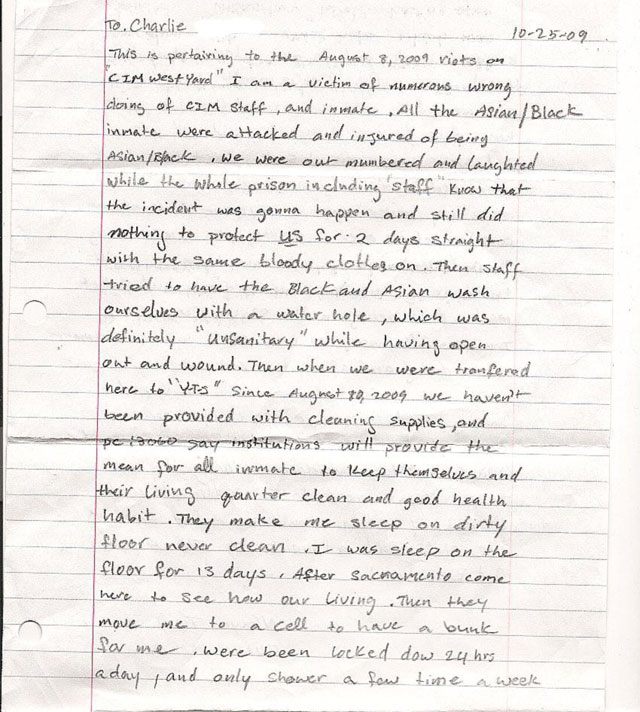 To. Charlie 10-25-09
This is pertairing to the August 8, 2009 riots on
"CIM West Yard" I am a victim of numerous wrong
doing of CIM staff, and inmate. All the Asian/Black
inmate were attacked and injured of being
Asian/Black. We were out mumbered and laughted
while the whole prison including "staff" know that
the incident was gonna happen and still did
nothing to protect US for 2 days straight
with the same bloody clothes on. Then staff
tried to have the Black and Asian wash
ourselves with a water hole, which was
definitely "unsanitary" while having open
cut and wound. Then when we were tranfered
here to "YTS" since August 2009 we haven't
been provided with cleaning supplies, and
pc say institutions will provide the
mean for all inmate to keep themselves and
their living quarter clean and good health
habit. They make me sleep on dirty
floor never clean. I was sleep on the
floor for 13 days. After sacramento come
here to see how our living. Then they
move me to a cell to have a bunk
for me. Were been locked dow 24 hrs
aday, and only shower a few time a week